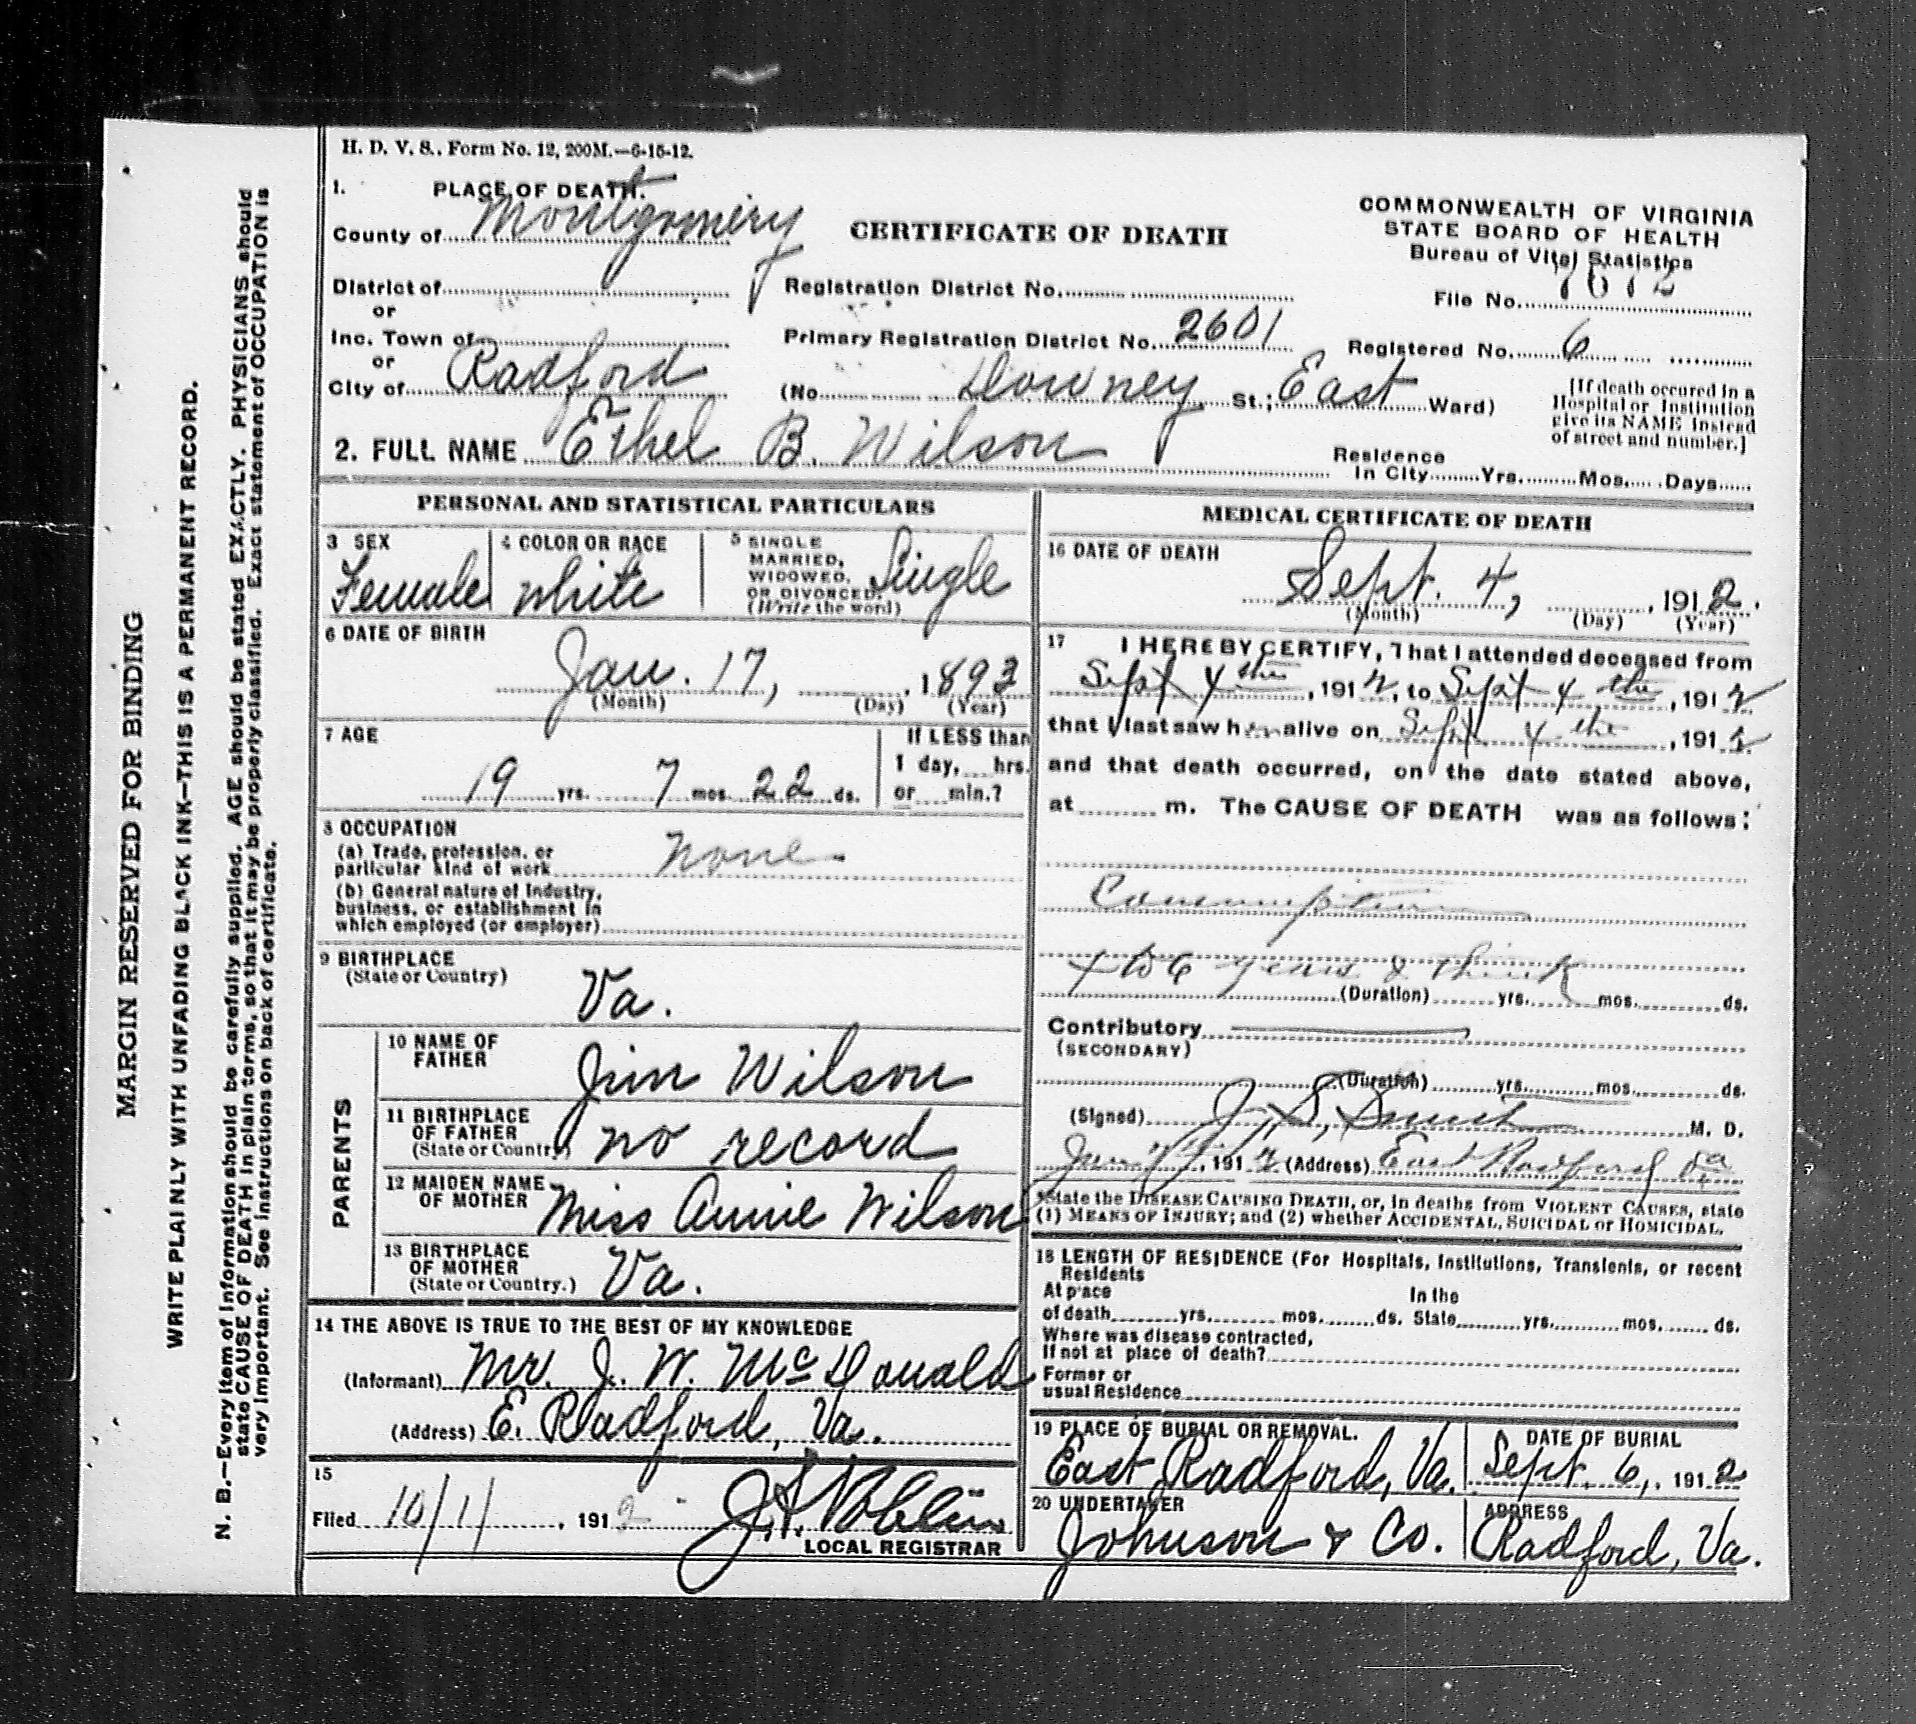 H. D. V. S., Form No. 12, 200M.—6-15-12.
1. PLACE OF DEATH.
County of Montgomery
District of
or
Inc. Town of
or
City of Radford
CERTIFICATE OF DEATH
Registration District No.
Primary Registration District No. 2601
(No Downey St.; East Ward)
COMMONWEALTH OF VIRGINIA
STATE BOARD OF HEALTH
Bureau of Vital Statistics
File No.
Registered No. 6
[If death occured in a
Hospital or Institution
give its NAME instead
of street and number.]
2. FULL NAME Ethel B. Wilson
Residence
In City Yrs. Mos. Days
PERSONAL AND STATISTICAL PARTICULARS
3 SEX
Female
4 COLOR OR RACE
White
5 SINGLE
MARRIED,
WIDOWED,
OR DIVORCED.
(Write the word)
Single
6 DATE OF BIRTH
Jan. 17, , 1893
(Month) (Day) (Year)
7 AGE
19 yrs. 7 mos. 22 ds.
If LESS than
1 day, hrs.
or min.?
8 OCCUPATION
(a) Trade, profession, or
particular kind of work None
(b) General nature of Industry,
business, or establishment in
which employed (or employer)
9 BIRTHPLACE
(State or Country)
Va.
PARENTS
10 NAME OF
FATHER
Jim Wilson
11 BIRTHPLACE
OF FATHER
(State or Country)
no record
12 MAIDEN NAME
OF MOTHER
Miss Annie Wilson
13 BIRTHPLACE
OF MOTHER
(State or Country.)
Va.
14 THE ABOVE IS TRUE TO THE BEST OF MY KNOWLEDGE
(Informant) Mr. J. W. McDonald
(Address) E. Radford, Va.
15
Filed 10/1/ , 1912
LOCAL REGISTRAR
MEDICAL CERTIFICATE OF DEATH
16 DATE OF DEATH
Sept. 4, , 1912.
(Month) (Day) (Year)
17 I HEREBY CERTIFY, That I attended deceased from
Sept 4 the , 1912, to Sept 4 the , 1912
that I last saw her alive on Sept 4 the , 1912
and that death occurred, on the date stated above,
at m. The CAUSE OF DEATH was as follows:
Consumption
4 to 6 years I think
(Duration) yrs. mos. ds.
Contributory
(SECONDARY)
(Duration) yrs. mos. ds.
(Signed) J. S. M. D.
, 1912 (Address) East Radford Va
*State the DISEASE CAUSING DEATH, or, in deaths from VIOLENT CAUSES, state
(1) MEANS OF INJURY; and (2) whether ACCIDENTAL, SUICIDAL or HOMICIDAL.
18 LENGTH OF RESIDENCE (For Hospitals, Institutions, Transients, or recent
Residents
At place
of death yrs. mos. ds.
In the
State yrs. mos. ds.
Where was disease contracted,
If not at place of death?
Former or
usual Residence
19 PLACE OF BURIAL OR REMOVAL.
East Radford, Va.
DATE OF BURIAL
Sept. 6, , 1912
20 UNDERTAKER
Johnson & Co.
ADDRESS
Radford, Va.
MARGIN RESERVED FOR BINDING
WRITE PLAINLY WITH UNFADING BLACK INK—THIS IS A PERMANENT RECORD.
N. B.—Every item of information should be carefully supplied. AGE should be stated EXACTLY. PHYSICIANS should
state CAUSE OF DEATH in plain terms, so that it may be properly classified. Exact statement of OCCUPATION is
very important. See instructions on back of certificate.